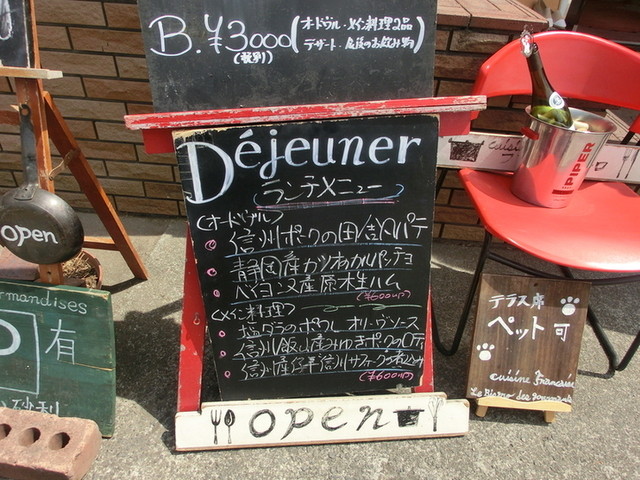 B. ¥3000
(税別)
オードヴル・メイン料理2品
デザート・食後のお飲み物
Déjeuner
ランチメニュー
〈オードヴル〉
信州ポークの田舎風パテ
静岡産カツオのカルパッチョ
バイヨンヌ産原木生ハム
(¥600UP)
〈メイン料理〉
塩ダラのポワレ オリーヴソース
信州飯山産みゆきポークのロティ
信州産 信州サフォークの煮込み
(¥600UP)
open
open
rmandises
P 有
砂利
cuisi
PIPER
テラス席
ペット可
cuisine Francaise
Le Bistro des gourmands